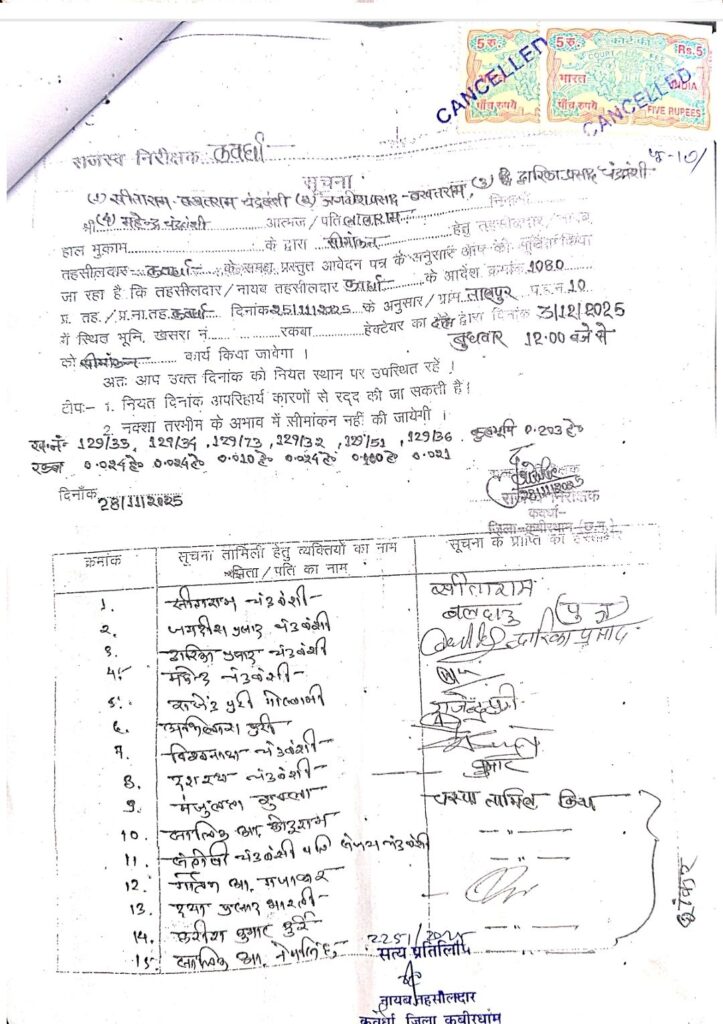 5 रु. कोर्ट फी 5 रु. Rs.5
COURT FEE
भारत भारत INDIA
पाँच रुपये पाँच रुपये FIVE RUPEES
CANCELLED CANCELLED
राजस्व निरीक्षक कवर्धा
सूचना
(1) सीताराम-बखतराम चंद्रवंशी (2) जगदीश प्रसाद-बखतराम, (3) द्वारिका प्रसाद चंद्रवंशी
श्री (4) महेन्द्र चंद्रवंशी आत्मज/पति निवासी
हाल मुकाम के द्वारा सीमांकन हेतु तहसीलदार/नायब
तहसीलदार कवर्धा के समक्ष प्रस्तुत आवेदन पत्र के अनुसार आप को सूचित किया
जा रहा है कि तहसीलदार/नायब तहसीलदार कवर्धा के आदेश क्रमांक 1080
प्र. तह./प्र.ना.तह. कवर्धा दिनांक 25/11/2025 के अनुसार/ग्राम लालपुर प.ह.न. 10
में स्थित भूमि, खसरा नं. रकबा हेक्टेयर का द्वारा दिनांक 3/12/2025
को सीमांकन कार्य किया जावेगा । बुधवार 12.00 बजे से
अतः आप उक्त दिनांक को नियत स्थान पर उपस्थित रहें ।
टीपः- 1. नियत दिनांक अपरिहार्य कारणों से रद्द की जा सकती है।
2. नक्शा तरमीम के अभाव में सीमांकन नहीं की जायेगी ।
ख.नं- 129/35, 129/34, 129/73, 129/32, 129/51, 129/36 0.203 हे०
रकबा 0.024 हे० 0.024 हे० 0.010 हे० 0.024 हे० 0.021
28/11/2025
राजस्व निरीक्षक
कवर्धा
दिनाँक 28/11/2025
जिला-कबीरधाम (छ.ग.)
क्रमांक सूचना तामिली हेतु व्यक्तियों का नाम पिता/पति का नाम सूचना के प्राप्ति का हस्ताक्षर
1. सीताराम चंद्रवंशी सीताराम
2. जगदीश प्रसाद चंद्रवंशी बलदाऊ (पुत्र)
3. द्वारिका प्रसाद चंद्रवंशी द्वारिका प्रसाद
4. महेन्द्र चंद्रवंशी
5. राजेन्द्र पुरी गोस्वामी राजेन्द्र पुरी
6. पुरी
7. विश्वनाथ चंद्रवंशी
8. दशरथ चंद्रवंशी कुमार
9. मंजुलता शुक्ला चस्पा तामिल किया
10. -"-
11. चंद्रवंशी पति चंद्रवंशी -"-
12.
13. कुमार
14. कुमार -"-
15. -"-
शंकर
सत्य प्रतिलिपि
नायब तहसीलदार
कवर्धा जिला कबीरधाम